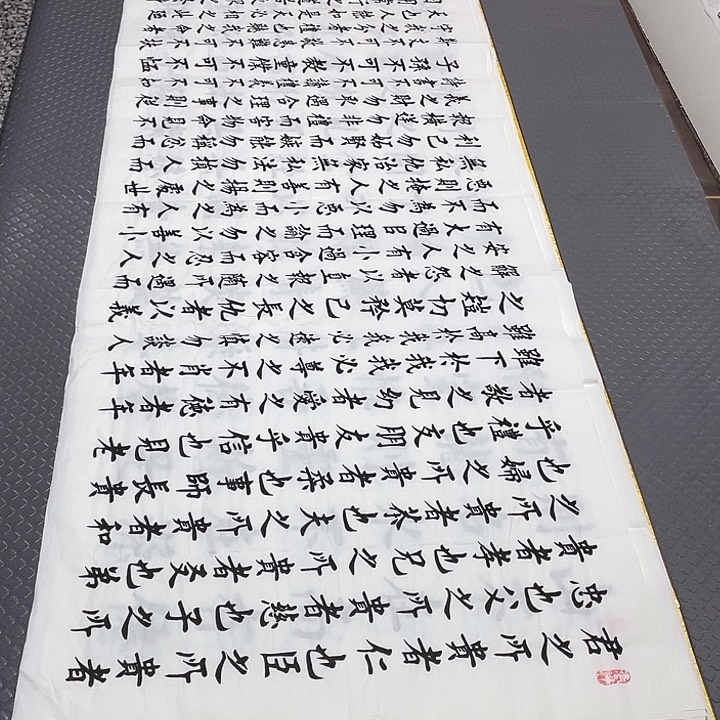 君之所貴者仁也臣之所貴者
忠也父之所貴者慈也子之所
貴者孝也兄之所貴者友也弟
之所貴者恭也夫之所貴者和
也婦之所貴者柔也事師長貴
乎禮也交朋友貴乎信也見老
者敬之見幼者愛之有德者年
雖下於我我必尊之不肖者年
雖高於我我必遠之慎勿談人
之短切莫矜己之長仇者以義
解之怨者以直報之隨所遇而
安之人有小過含容而忍之人
有大過以理而諭之勿以善小
而不為勿以惡小而為之人有
惡則掩之人有善則揚之處世
無私仇治家無私法勿損人而
利己勿妒賢而嫉能勿稱忿而
報橫逆勿非禮而害物命見不
義之財勿取遇合理之事則從
詩書不可不讀禮義不可不知
子孫不可不教童僕不可不恤
斯文不可不敬患難不可不扶
守我之分者禮也聽我之命者
天也人能如是天必相之此乃